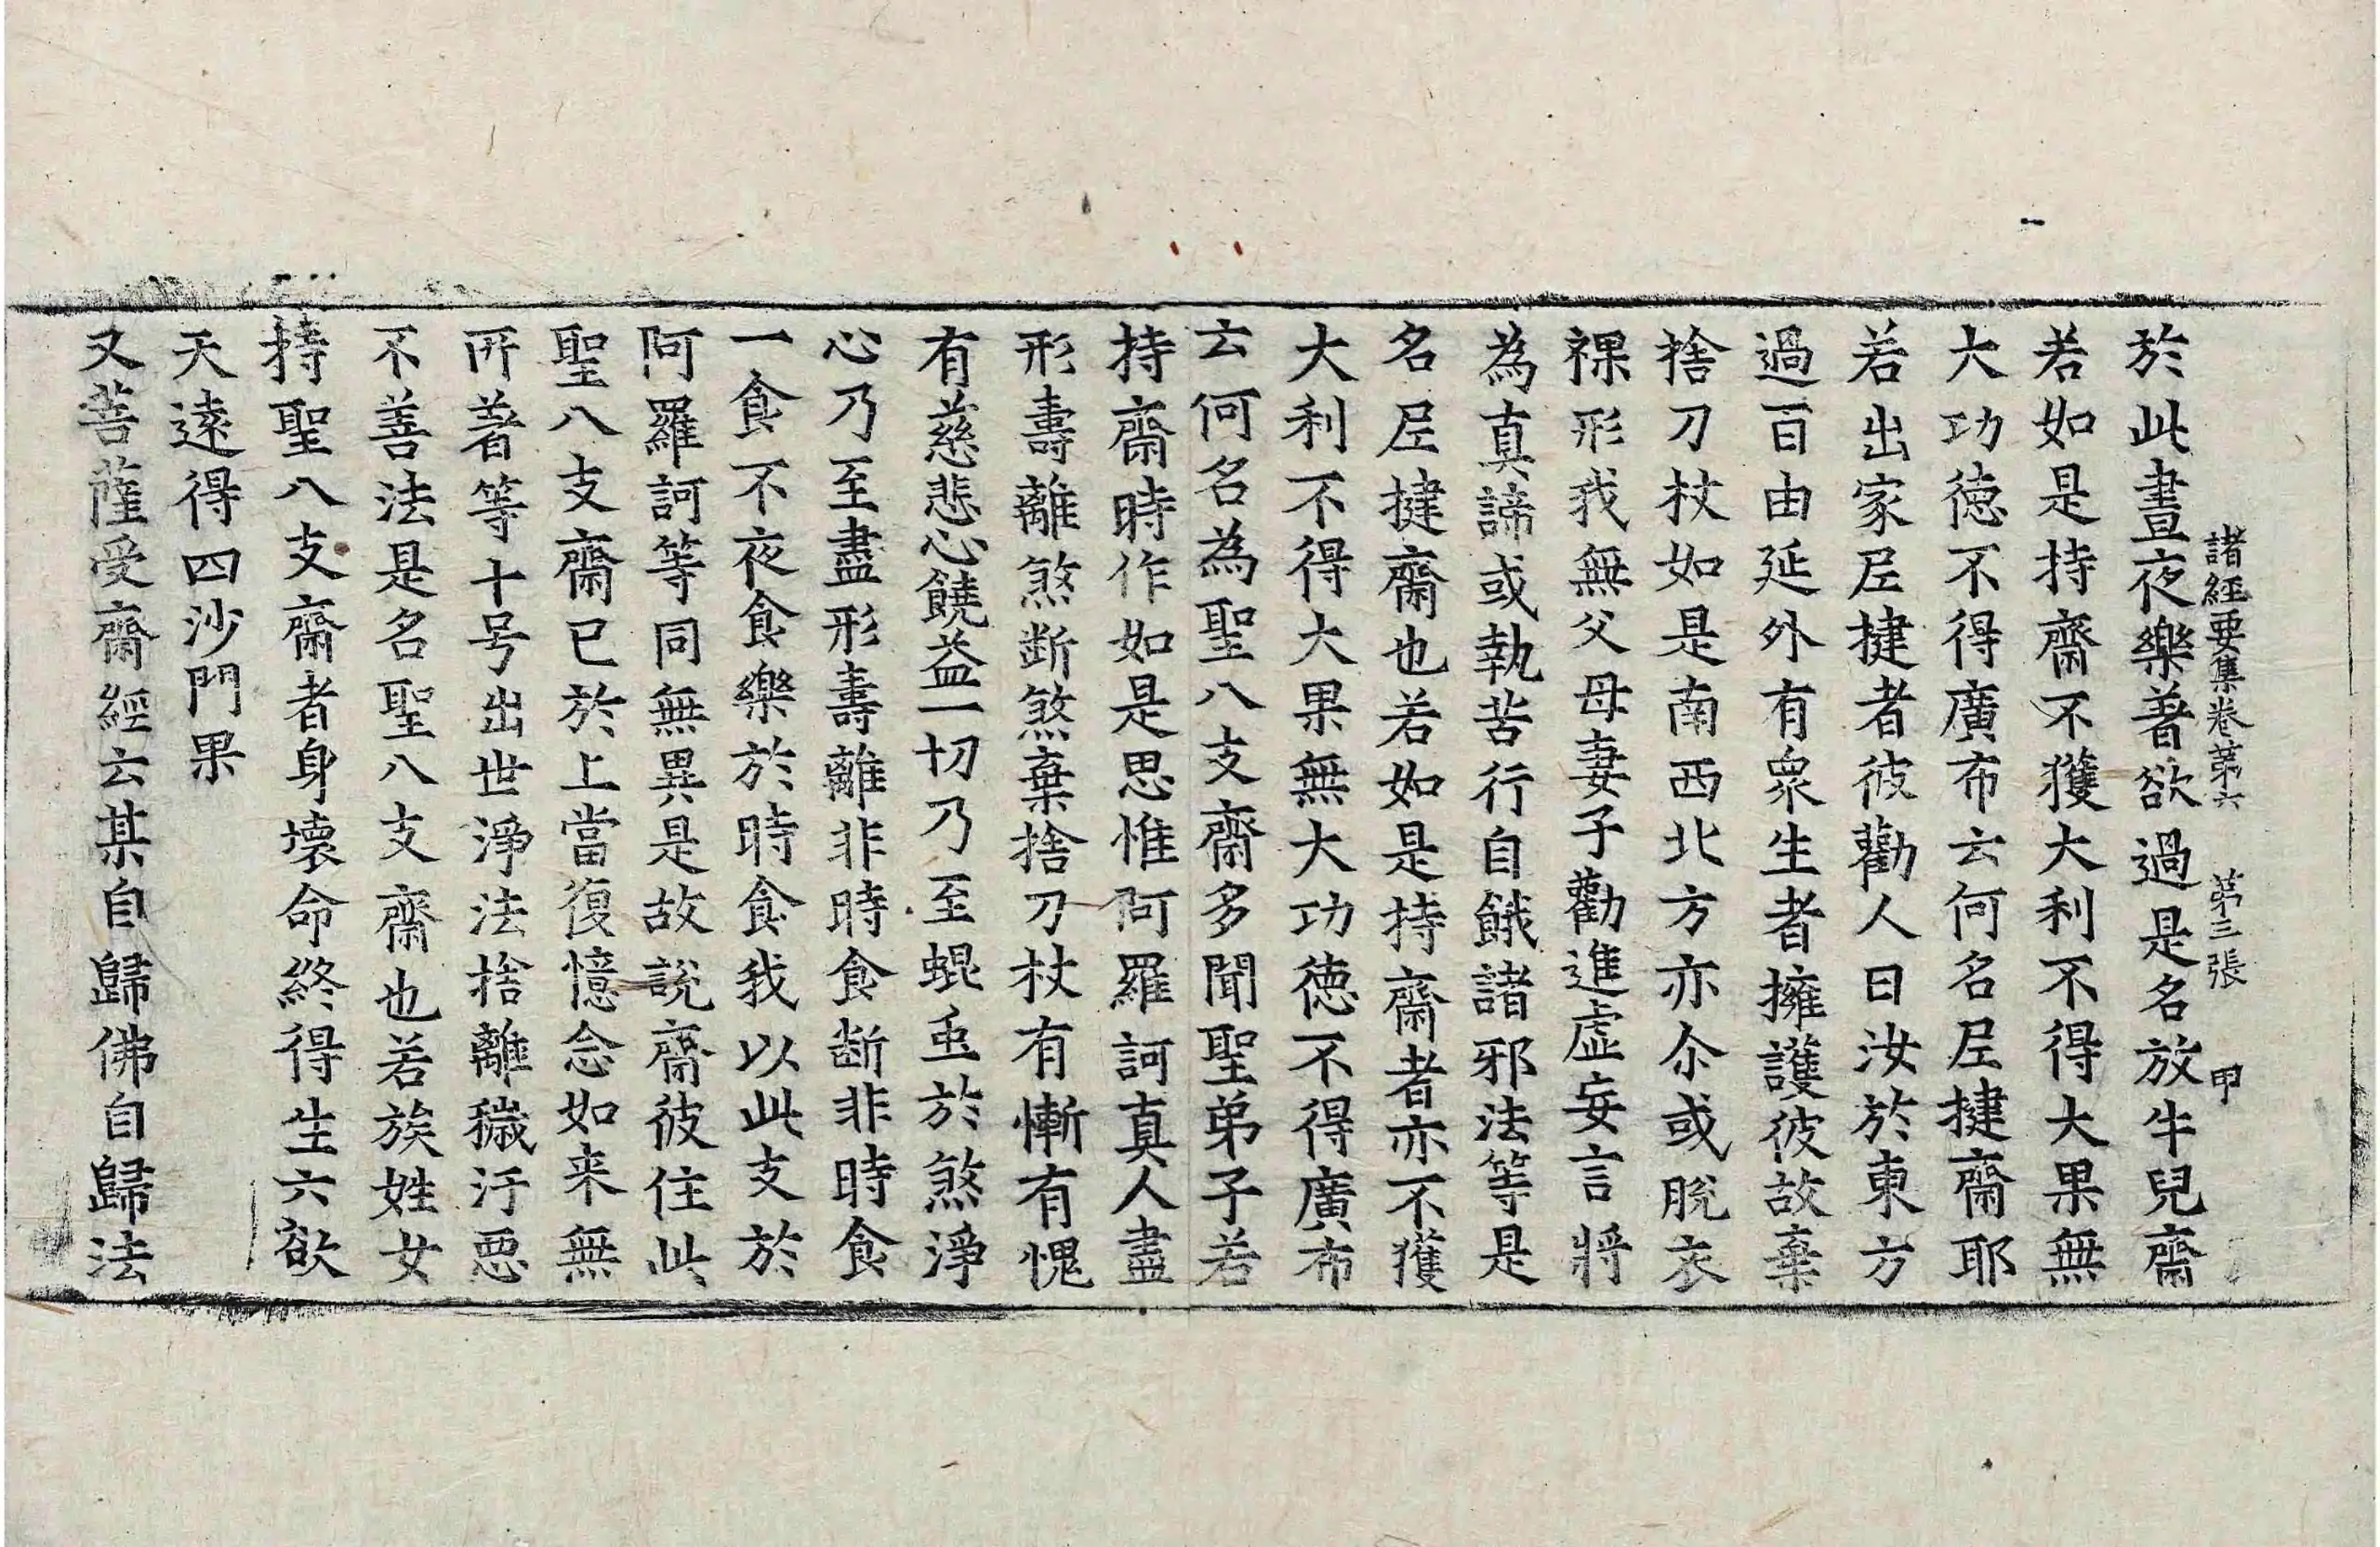 諸經要集卷苐六 苐三張 甲
於此晝夜樂著欲過是名放牛兒齋
若如是持齋不獲大利不得大果無
大功徳不得廣布云何名尼揵齋耶
若出家尼揵者彼勸人曰汝於東方
過百由延外有衆生者擁護彼故棄
捨刀杖如是南西北方亦尒或脫衣
裸形我無父母妻子勸進虛妄言將
為真諦或執苦行自餓諸邪法等是
名尼揵齋也若如是持齋者亦不獲
大利不得大果無大功徳不得廣布
云何名為聖八支齋多聞聖弟子若
持齋時作如是思惟阿羅訶真人盡
形壽離煞斷煞棄捨刀杖有慚有愧
有慈悲心饒益一切乃至蜫䖝於煞淨
心乃至盡形壽離非時食断非時食
一食不夜食樂於時食我以此支於
阿羅訶等同無異是故說齋彼住此
聖八支齋已於上當復憶念如来無
所著等十号出世淨法捨離穢汙惡
不善法是名聖八支齋也若族姓女
持聖八支齋者身壞命終得生六欲
天遠得四沙門果
又菩薩受齋經云某自歸佛自歸法